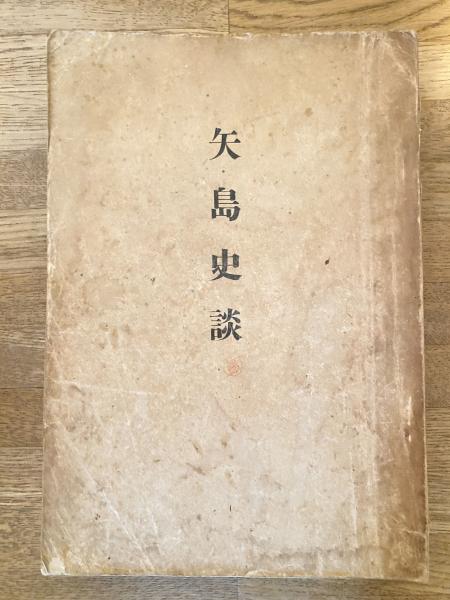 矢島史談